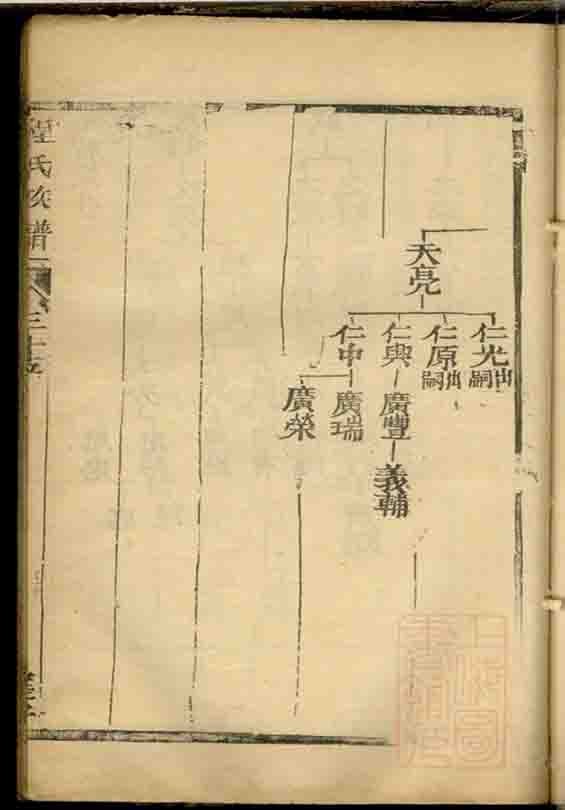 天亮
仁光出嗣
仁原出嗣
仁與
仁中
廣豐
廣瑞
廣榮
義輔
氏族譜